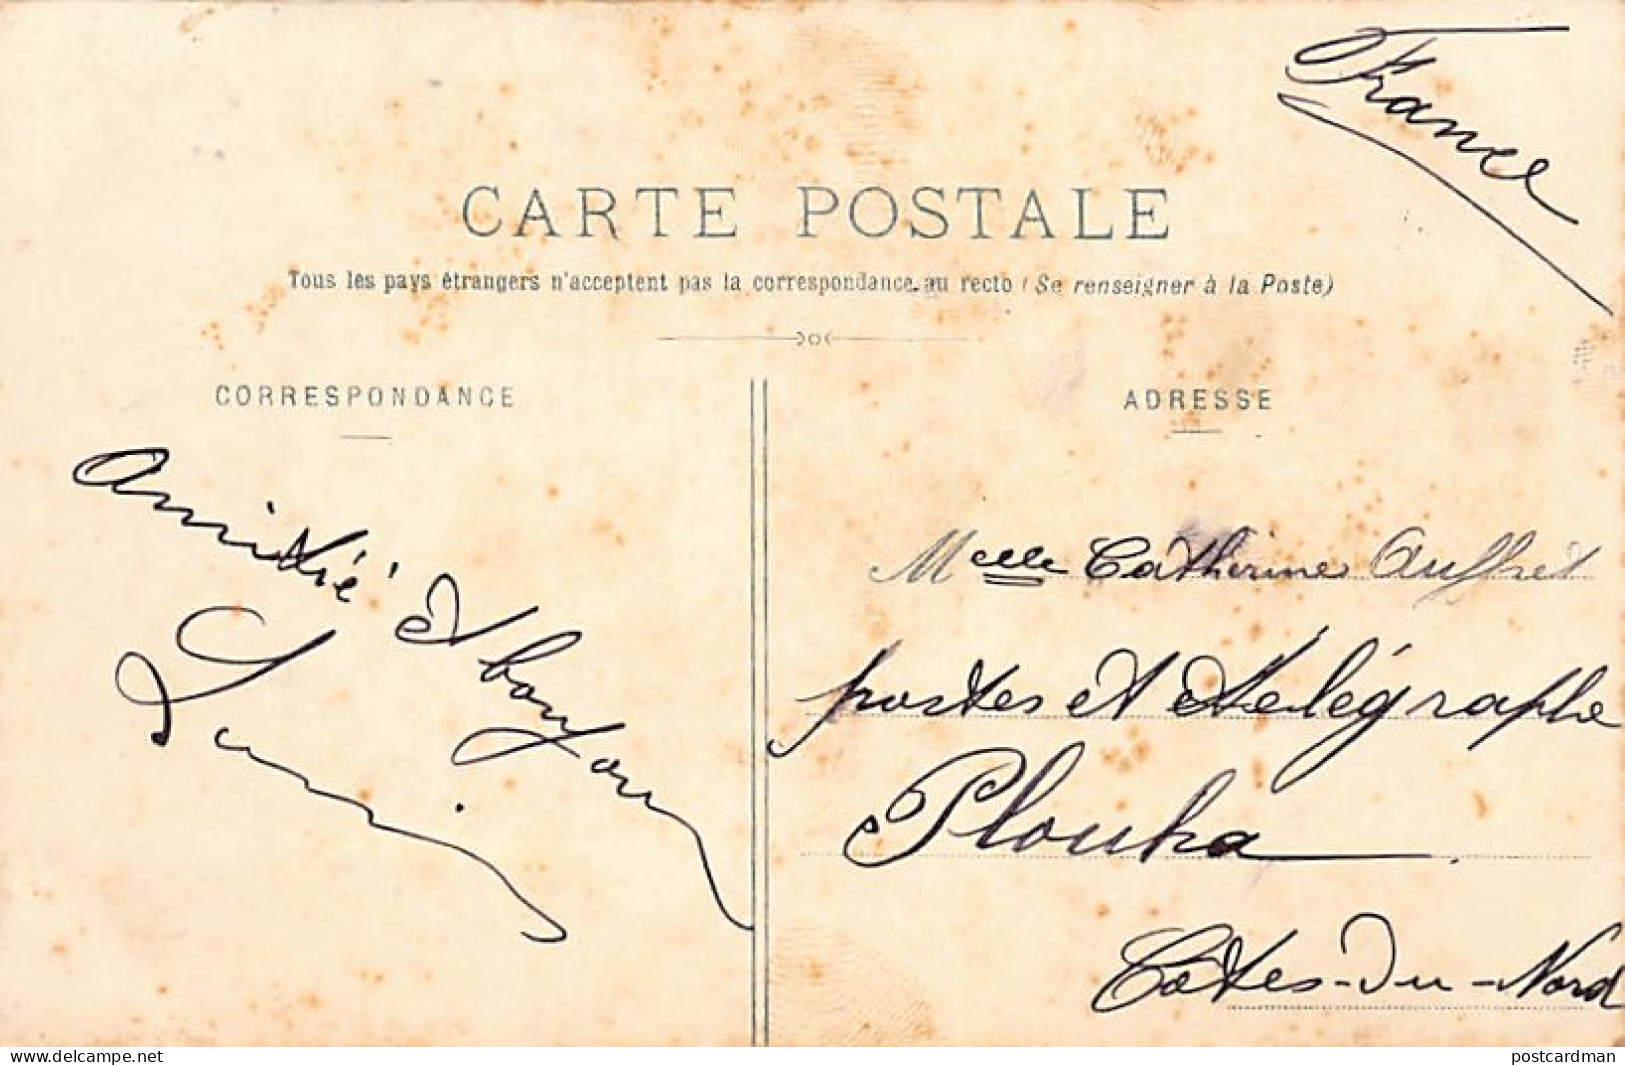 France
CARTE POSTALE
Tous les pays étrangers n'acceptent pas la correspondance au recto (Se renseigner à la Poste)
CORRESPONDANCE
ADRESSE
Amitié et bonjour
Louis
Melle Catherine Auffret
postes et télégraphe
Plouha
Côtes-du-Nord
delcampe.net
postcardman